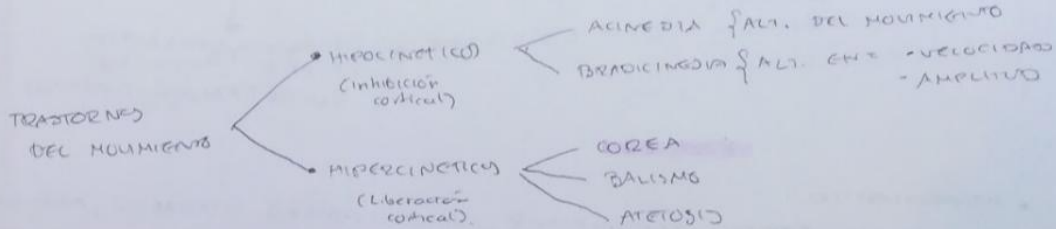 TRASTORNOS
DEL MOVIMIENTO
• HIPOCINETICOS
(inhibición
cortical)
ACINEDIA { ALT. DEL MOVIMIENTO
BRADICINEDIA { ALT. EN = - VELOCIDAD
- AMPLITUD
• HIPERCINETICOS
(Liberación
cortical).
COREA
BALISMO
ATETOSIS